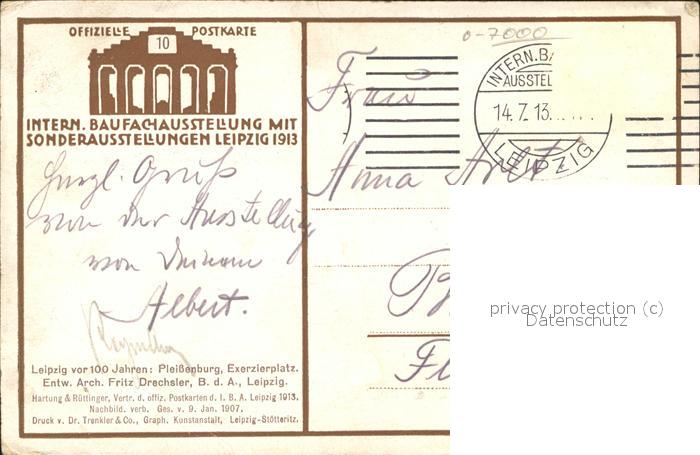 OFFIZIELLE POSTKARTE
10
INTERN. BAUFACHAUSSTELLUNG MIT
SONDERAUSSTELLUNGEN LEIPZIG 1913
Herzl. Gruß
von der Ausstellung
von Deinem
Albert.
Leipzig vor 100 Jahren: Pleißenburg, Exerzierplatz.
Entw. Arch. Fritz Drechsler, B. d. A., Leipzig.
Hartung & Rüttinger, Vertr. d. offiz. Postkarten d. I. B. A. Leipzig 1913.
Nachbild. verb. Ges. v. 9. Jan. 1907.
Druck v. Dr. Trenkler & Co., Graph. Kunstanstalt, Leipzig-Stötteritz.
o-7000
INTERN. BA
AUSSTEL
14.7.13.
LEIPZIG
Frau
Anna
privacy protection (c)
Datenschutz